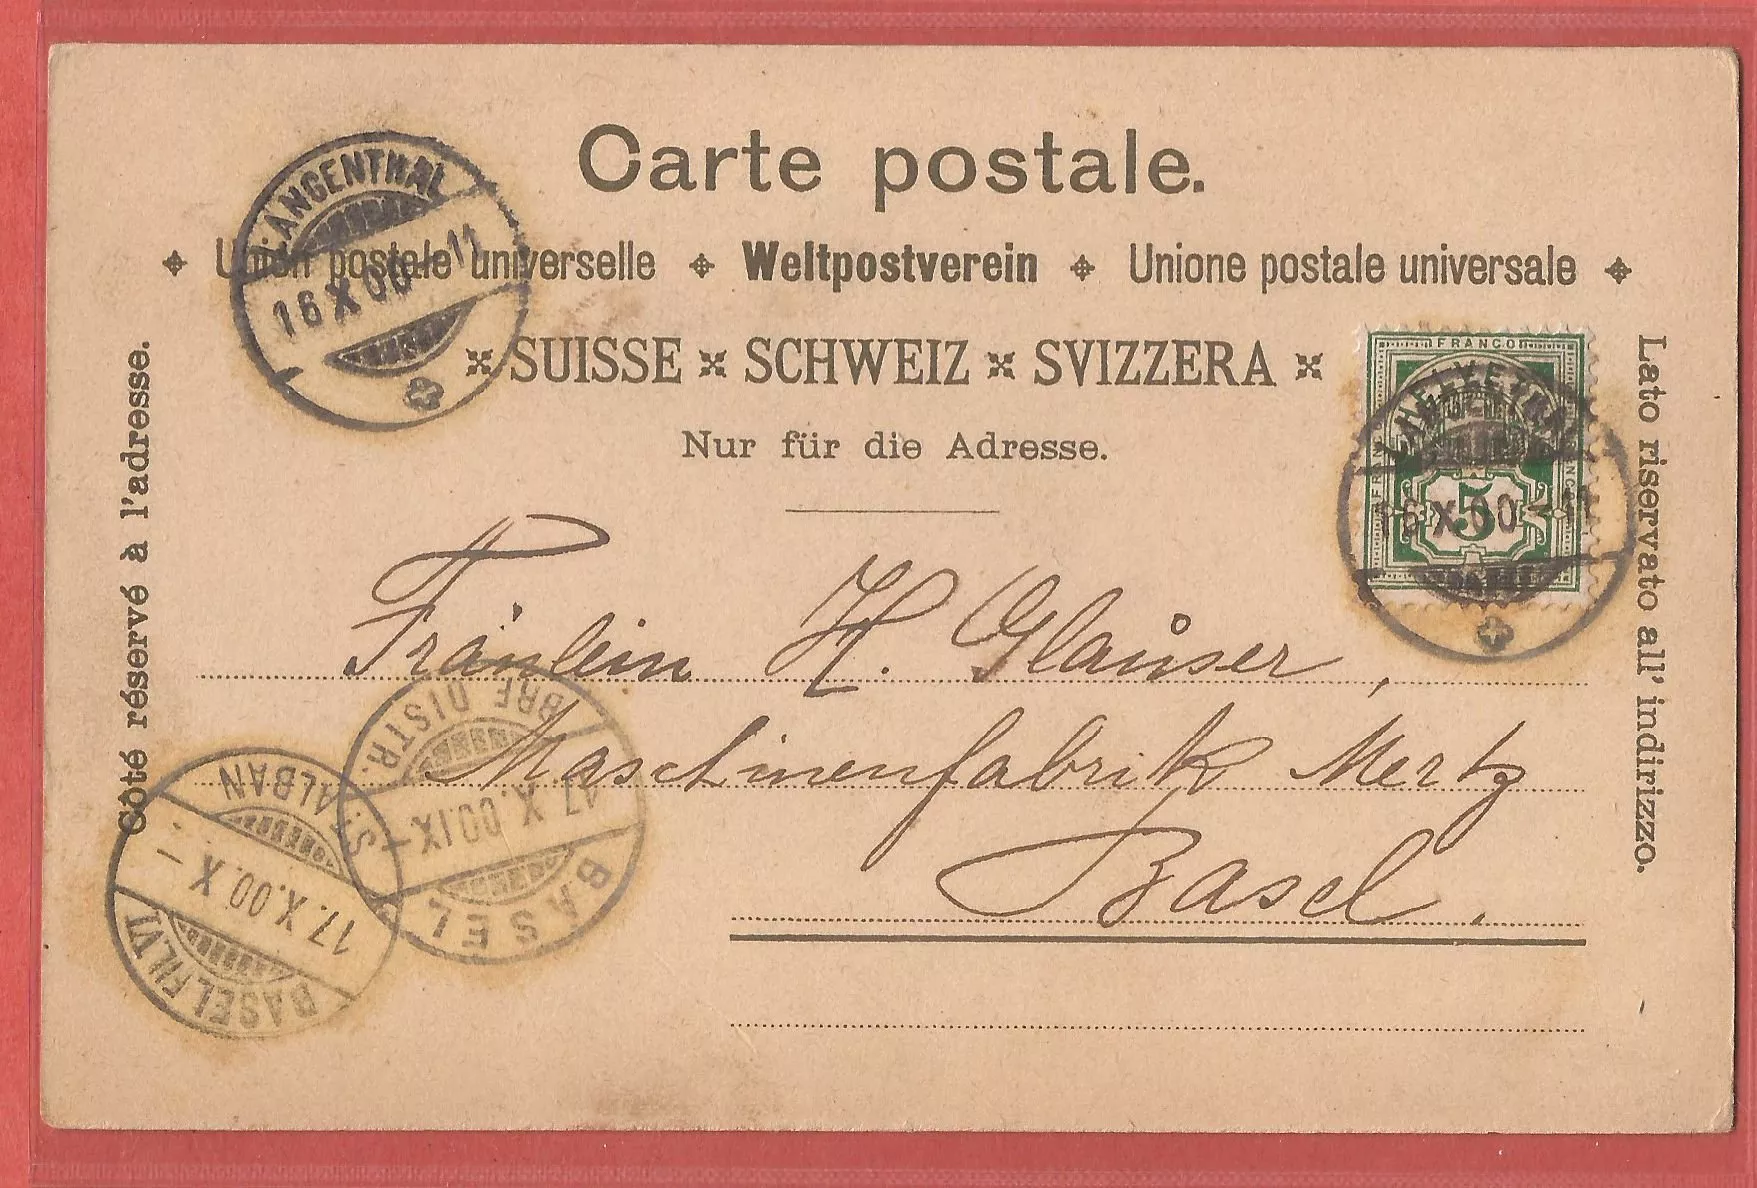 Carte postale.
Union postale universelle Weltpostverein Unione postale universale
SUISSE SCHWEIZ SVIZZERA
Nur für die Adresse.
Côté réservé à l'adresse.
Lato riservato all' indirizzo.
LANGENTHAL
16 X 00 - 11
FRANCO
HELVETIA
5
X 00 - 11
Fräulein H. Glauser,
Maschinenfabrik Mertz
Basel.
BRF. DISTR.
17. X. 00. IX -
BASEL
S. ALBAN
17. X. 00. X -
BASEL FIL. VI